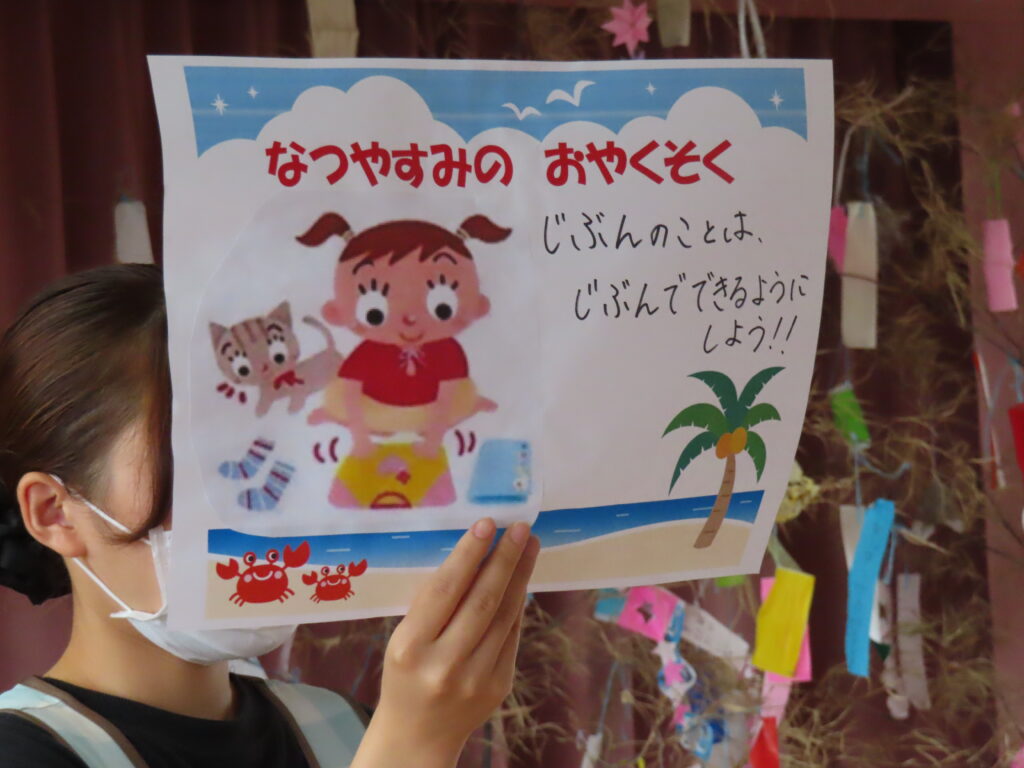 なつやすみの おやくそく
じぶんのことは、
じぶんでできるように
しよう!!